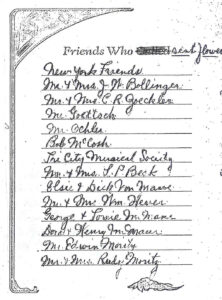 Friends Who Called sent flowers
New York Friends
Mr. & Mrs. J. H. Bollinger
Mr. & Mrs. E. R. Goeckler
Mr. Goettsch
Mr. Oehler
Bob McCosh
Tri City Musical Society
Mr. & Mrs. L. P. Beck
Elsie & Dick Von Maur
Mr. & Mrs. Wm Hever
George & Louie Mc Mane
Dora & Henry
Mr. Edwin Moritz
Mr. & Mrs. Rudy Moritz